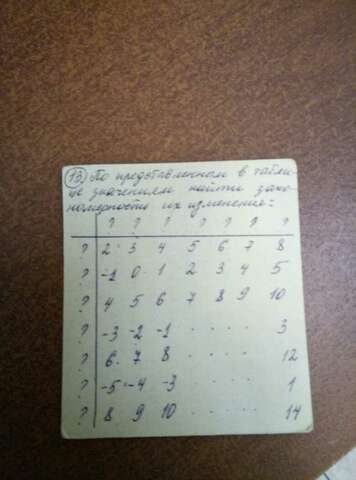 13. По представленным в табли-
це значениям найти зако-
номерность их изменения:
? ? ? ? ? ? ?
? 2 3 4 5 6 7 8
? -1 0 1 2 3 4 5
? 4 5 6 7 8 9 10
? -3 -2 -1 . . . . 3
? 6 7 8 . . . . 12
? -5 -4 -3 . . . . 1
? 8 9 10 . . . . 14